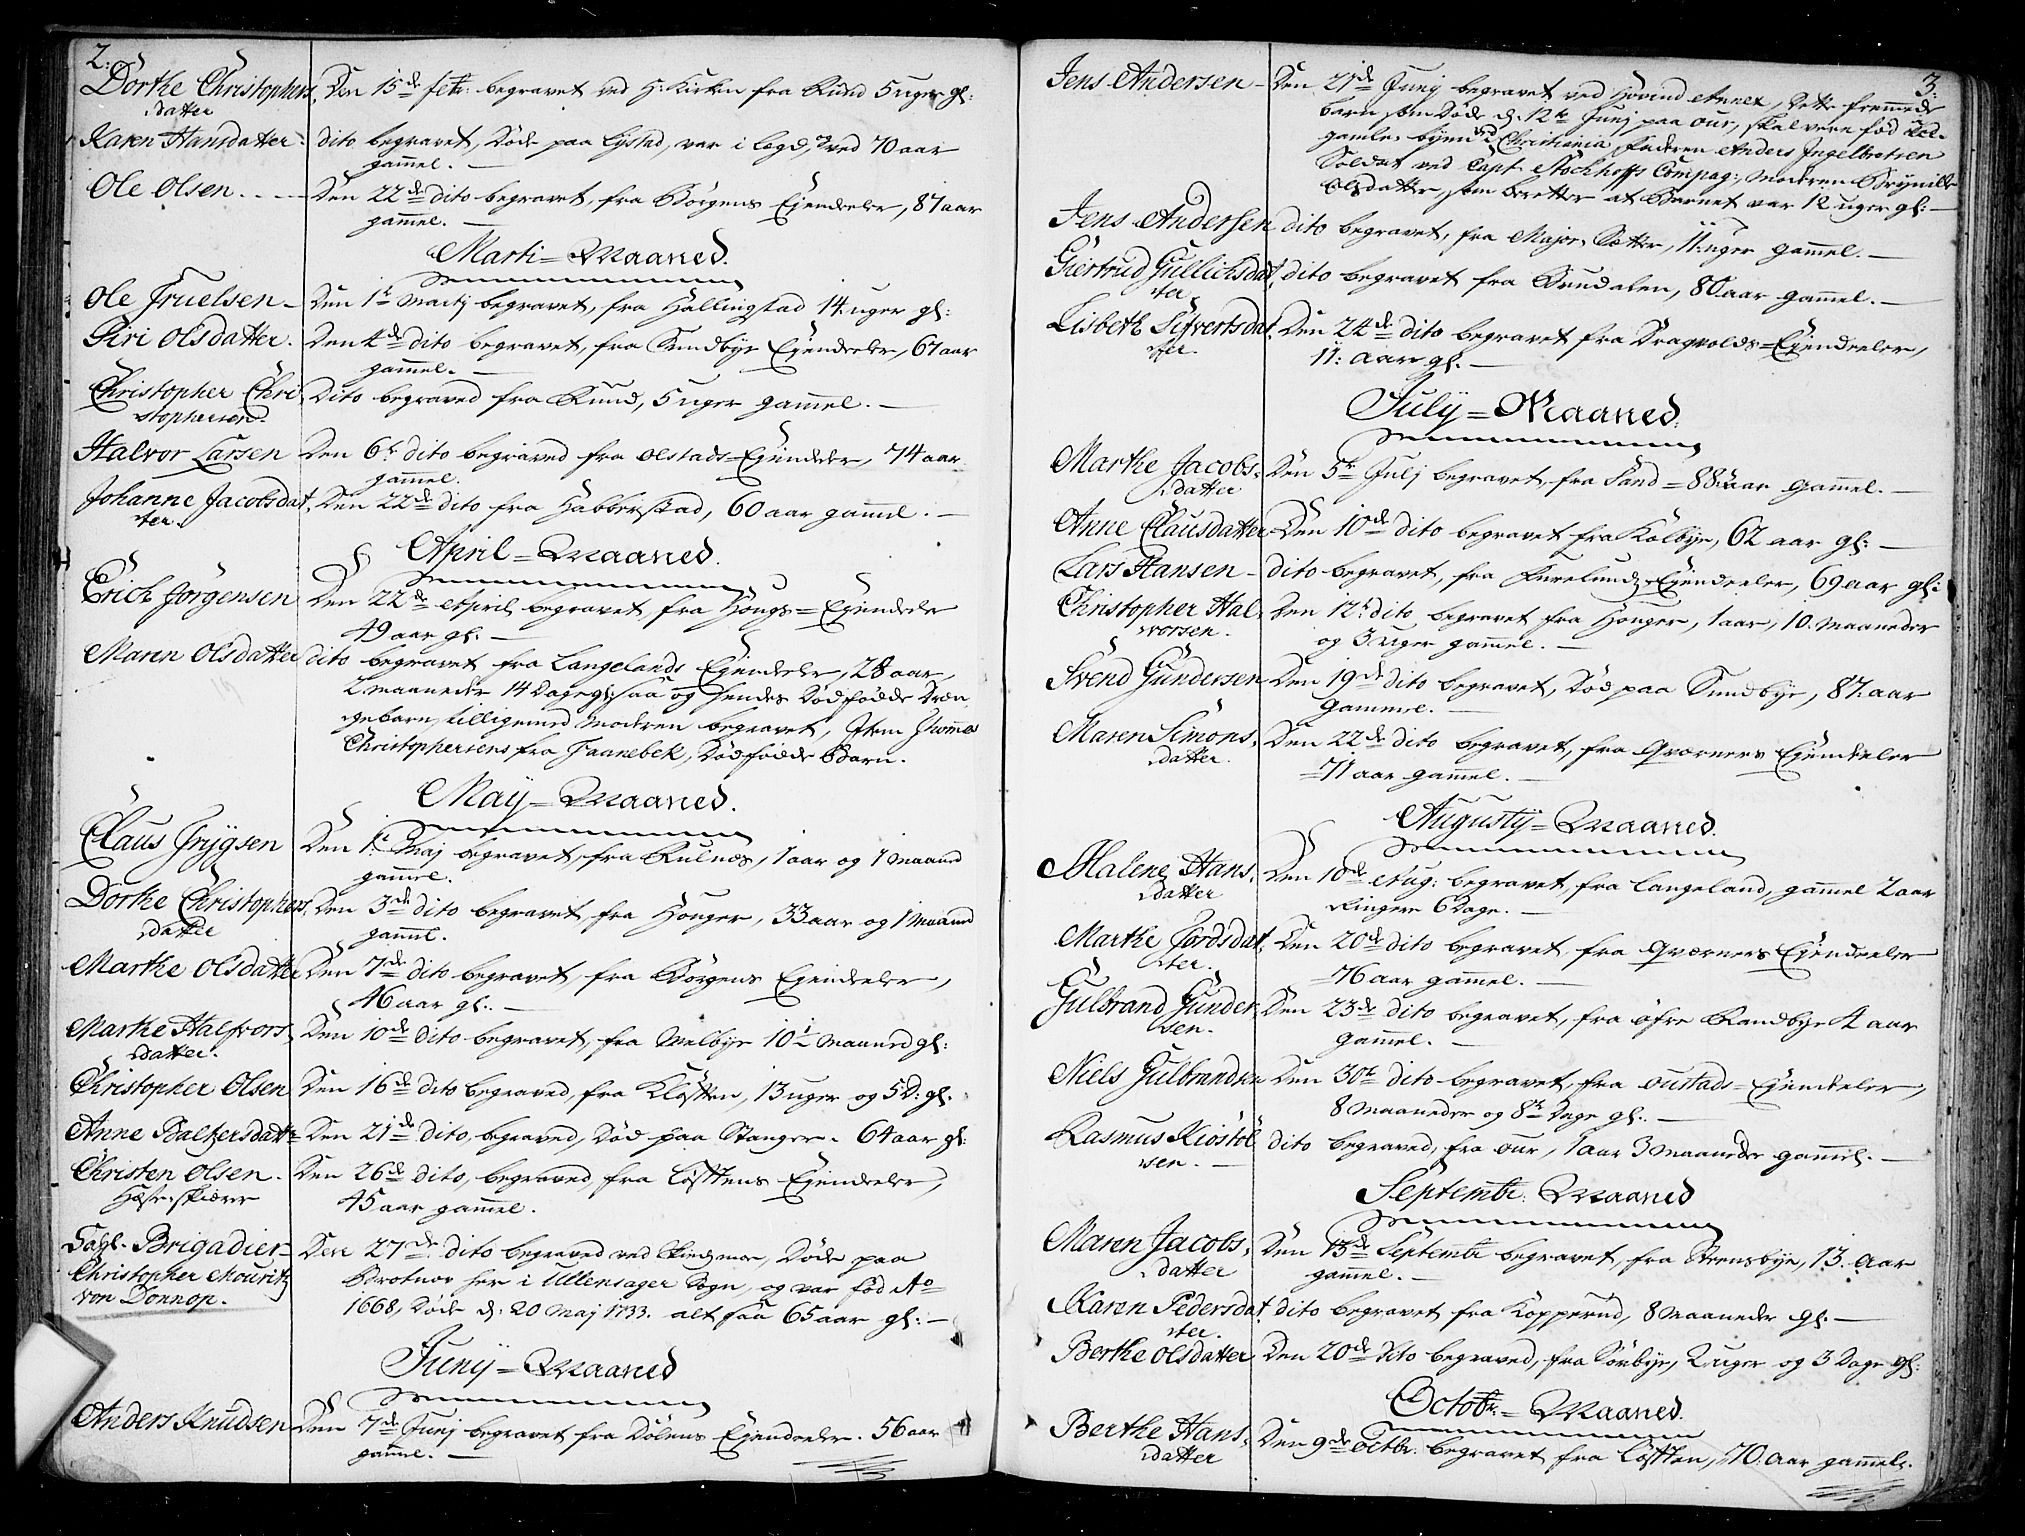 2.
Dorthe Christophers, Den 15de febr: begravet ved H: Kirken fra Rund 5 uger gl:
datter
Karen Hansdatter. dito begravet, døde paa Lystad, var i legd, ved 70 aar
gammel. —
Ole Olsen . . . Den 22de dito begravet, fra Børgens Ejendeeler, 87 aar
gammel. —
Marti = Maaned.
Ole Truelsen — Den 1te Martij begravet, fra Hallingstad 14 uger gl:
Siri Olsdatter. Den 4de dito begravet, fra Sundbye Ejendeeler, 67 aar
gammel. —
Christopher Chri, Dito begraved fra Rund, 5 uger gammel. —
stophersen.
Halvor Larsen Den 6te dito begraved fra Olstads = Ejendeler, 74 aar
gammel.
Johanne Jacobsdat, Den 22de dito fra Habberstad, 60 aar gammel. —
ter.
April = Maaned.
Erich Jørgensen Den 22de April begravet, fra Hougs = Ejendeeler
49 aar gl: —
Maren Olsdatter dito begravet fra Langelands Ejendeeler, 28 aar,
2 maaneder 14 Dage gl: saa og hendes Dødfødde Dren,
gebarn, tilligemed Moderen begravet, Item Thomas
Christophersens fra Jaanebek, Dødfødde Barn.
May = Maaned.
Claus Trygsen Den 1te Maj begravet, fra Rulnæs, 1 aar og 1 maaned
gammel.
Dorthe Christophers, Den 3de dito begravet, fra Houger, 33 aar og 1 Maaned
datter gammel.
Marthe Olsdatter Den 7de dito begravet, fra Børgens Ejendeeler,
46 aar gl: —
Marthe Halfvors, Den 10de dito begravet, fra Melbye 10½ Maaned gl:
datter.
Christopher Olsen Den 16de dito begraved, fra Kløften, 13 uger og 5 D: gl.
Anne Baltzersdatter Den 21de dito, begraved, død paa Stanger. 64 aar gl:
Christen Olsen. Den 26de dito, begraved, fra Løfttens Ejendeeler,
Hæsteskiærer 45 aar gammel.
Sahl. Brigadier Den 27de dito begraved ved Kirken, Døde paa
Christopher Mouritz Brotnov her i Ullensager Sogn, og var fød Ao
von Donnop. 1668, Døde d: 20 Maj 1733. alt saa 65 aar gl: —
Junij = Maaned
Anders Knudsen Den 7de Junij begravet fra Dølens Ejendeeler. 56 aar
gammel. —
3.
Jens Andersen — Den 21de Junij begravet ved Hovind Annex, dette fremmede
barn, som Døde d. 12te Junij paa Our, skal vere fød
gamle byen ved Christiania, Faderen Anders Ingelbretsen
Soldat ved Capt: Stockhoffs Compag:, Moderen Brynille
Olsdatter, som beretter at Barnet var 12 uger gl: —
Jens Andersen dito begravet, fra Major Sætter, 11 uger gammel. —
Giertrud Gullichsdat, dito begravet fra Brudalen, 80 aar gammel. —
ter
Lisbeth Sifvertsdat, Den 24de dito begravet fra Dragvolds = Ejendeeler,
ter. 11: aar gl. —
July = Maaned.
Marthe Jacobs, Den 5te Julj begravet, fra Sand = 88 aar gammel. —
datter
Anne Clausdatter Den 10de dito begravet fra Kolbye, 62 aar gl: —
Lars Hansen — dito begravet, fra Furelundz Ejendeeler, 69 aar gl:
Christopher Hal, Den 12te dito, begravet fra Houger, 1 aar, 10. maaneder
vorsen. og 3 uger gammel. —
Svend Gundersen Den 19de dito begravet, død paa Sundbye, 87. aar
gammel. —
Maren Simons, Den 22de dito begravet, fra Qværners Ejendeeler
datter. 71 aar gammel. —
Augusty = Maaned.
Malene Hans, Den 10de Aug: begravet, fra Langeland, gammel 2 aar
datter Ringere 6 Dage. —
Marthe Tordsdat, Den 20de dito begravet, fra Qværners Ejendeeler
ter. 76 aar gammel. —
Gulbrand Gunder, Den 23de dito begravet, fra øfre Randbye 4 aar
sen. gammel. —
Niels Gulbrandsen Den 30te dito begravet, fra Oustads = Ejendeler,
8 maaneder og 8te Dage gl: —
Rasmus Kiøstol dito begraved, fra Our, 1 aar 3 maaneder gammel. —
sen. —
Septembr: Maaned
Maren Jacobs, Den 13de Septembr begravet, fra Steensbye, 13. aar
datter gammel. —
Karen Pedersdat, dito begravet fra Kopperud, 8 maaneder gl. —
ter.
Berthe Olsdatter Den 20de dito begraved, fra Sørbye, 2 uger og 3 Dage gl:
Octobr: = Maaned.
Berthe Hans, Den 9de Octbr: begravet fra Løftten, 70. aar gammel.
datter